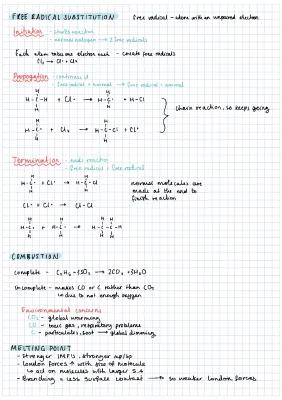 FREE RADICAL SUBSTITUTION Free radical - atom with an unpaired electron
Initiation - starts reaction
- normal halogen → 2 free radicals
Each atom takes one electron each - create free radicals
Cl₂ → Cl• + Cl•
Propagation - continues it
- free radical + normal → free radical + normal
H H
H-C-H + Cl• → H-C• + H-Cl
H H
chain reaction, so keeps going
H H
H-C• + Cl₂ → H-C-Cl + Cl•
H H
Termination - ends reaction
- free radical + free radical
H H
H-C• + Cl• → H-C-Cl
H H
normal molecules are
made at the end to
finish reaction
Cl• + Cl• → Cl-Cl
H H H H
H-C• + H-C• → H-C-C-H
H H H H
COMBUSTION
complete - C₂H₆ + O₂ → 2CO₂ + 3H₂O
Incomplete - makes CO or C rather than CO₂
↳ due to not enough oxygen
Environmental concerns
CO₂ - global warming
CO - toxic gas, respiratory problems
C - particulates, soot → global dimming
MELTING POINT
- Stronger IMFs, stronger mp/bp
- London forces ↑ with size of molecule
↳ act on molecules with larger S.A
- Branching = less surface contact → so weaker London forces